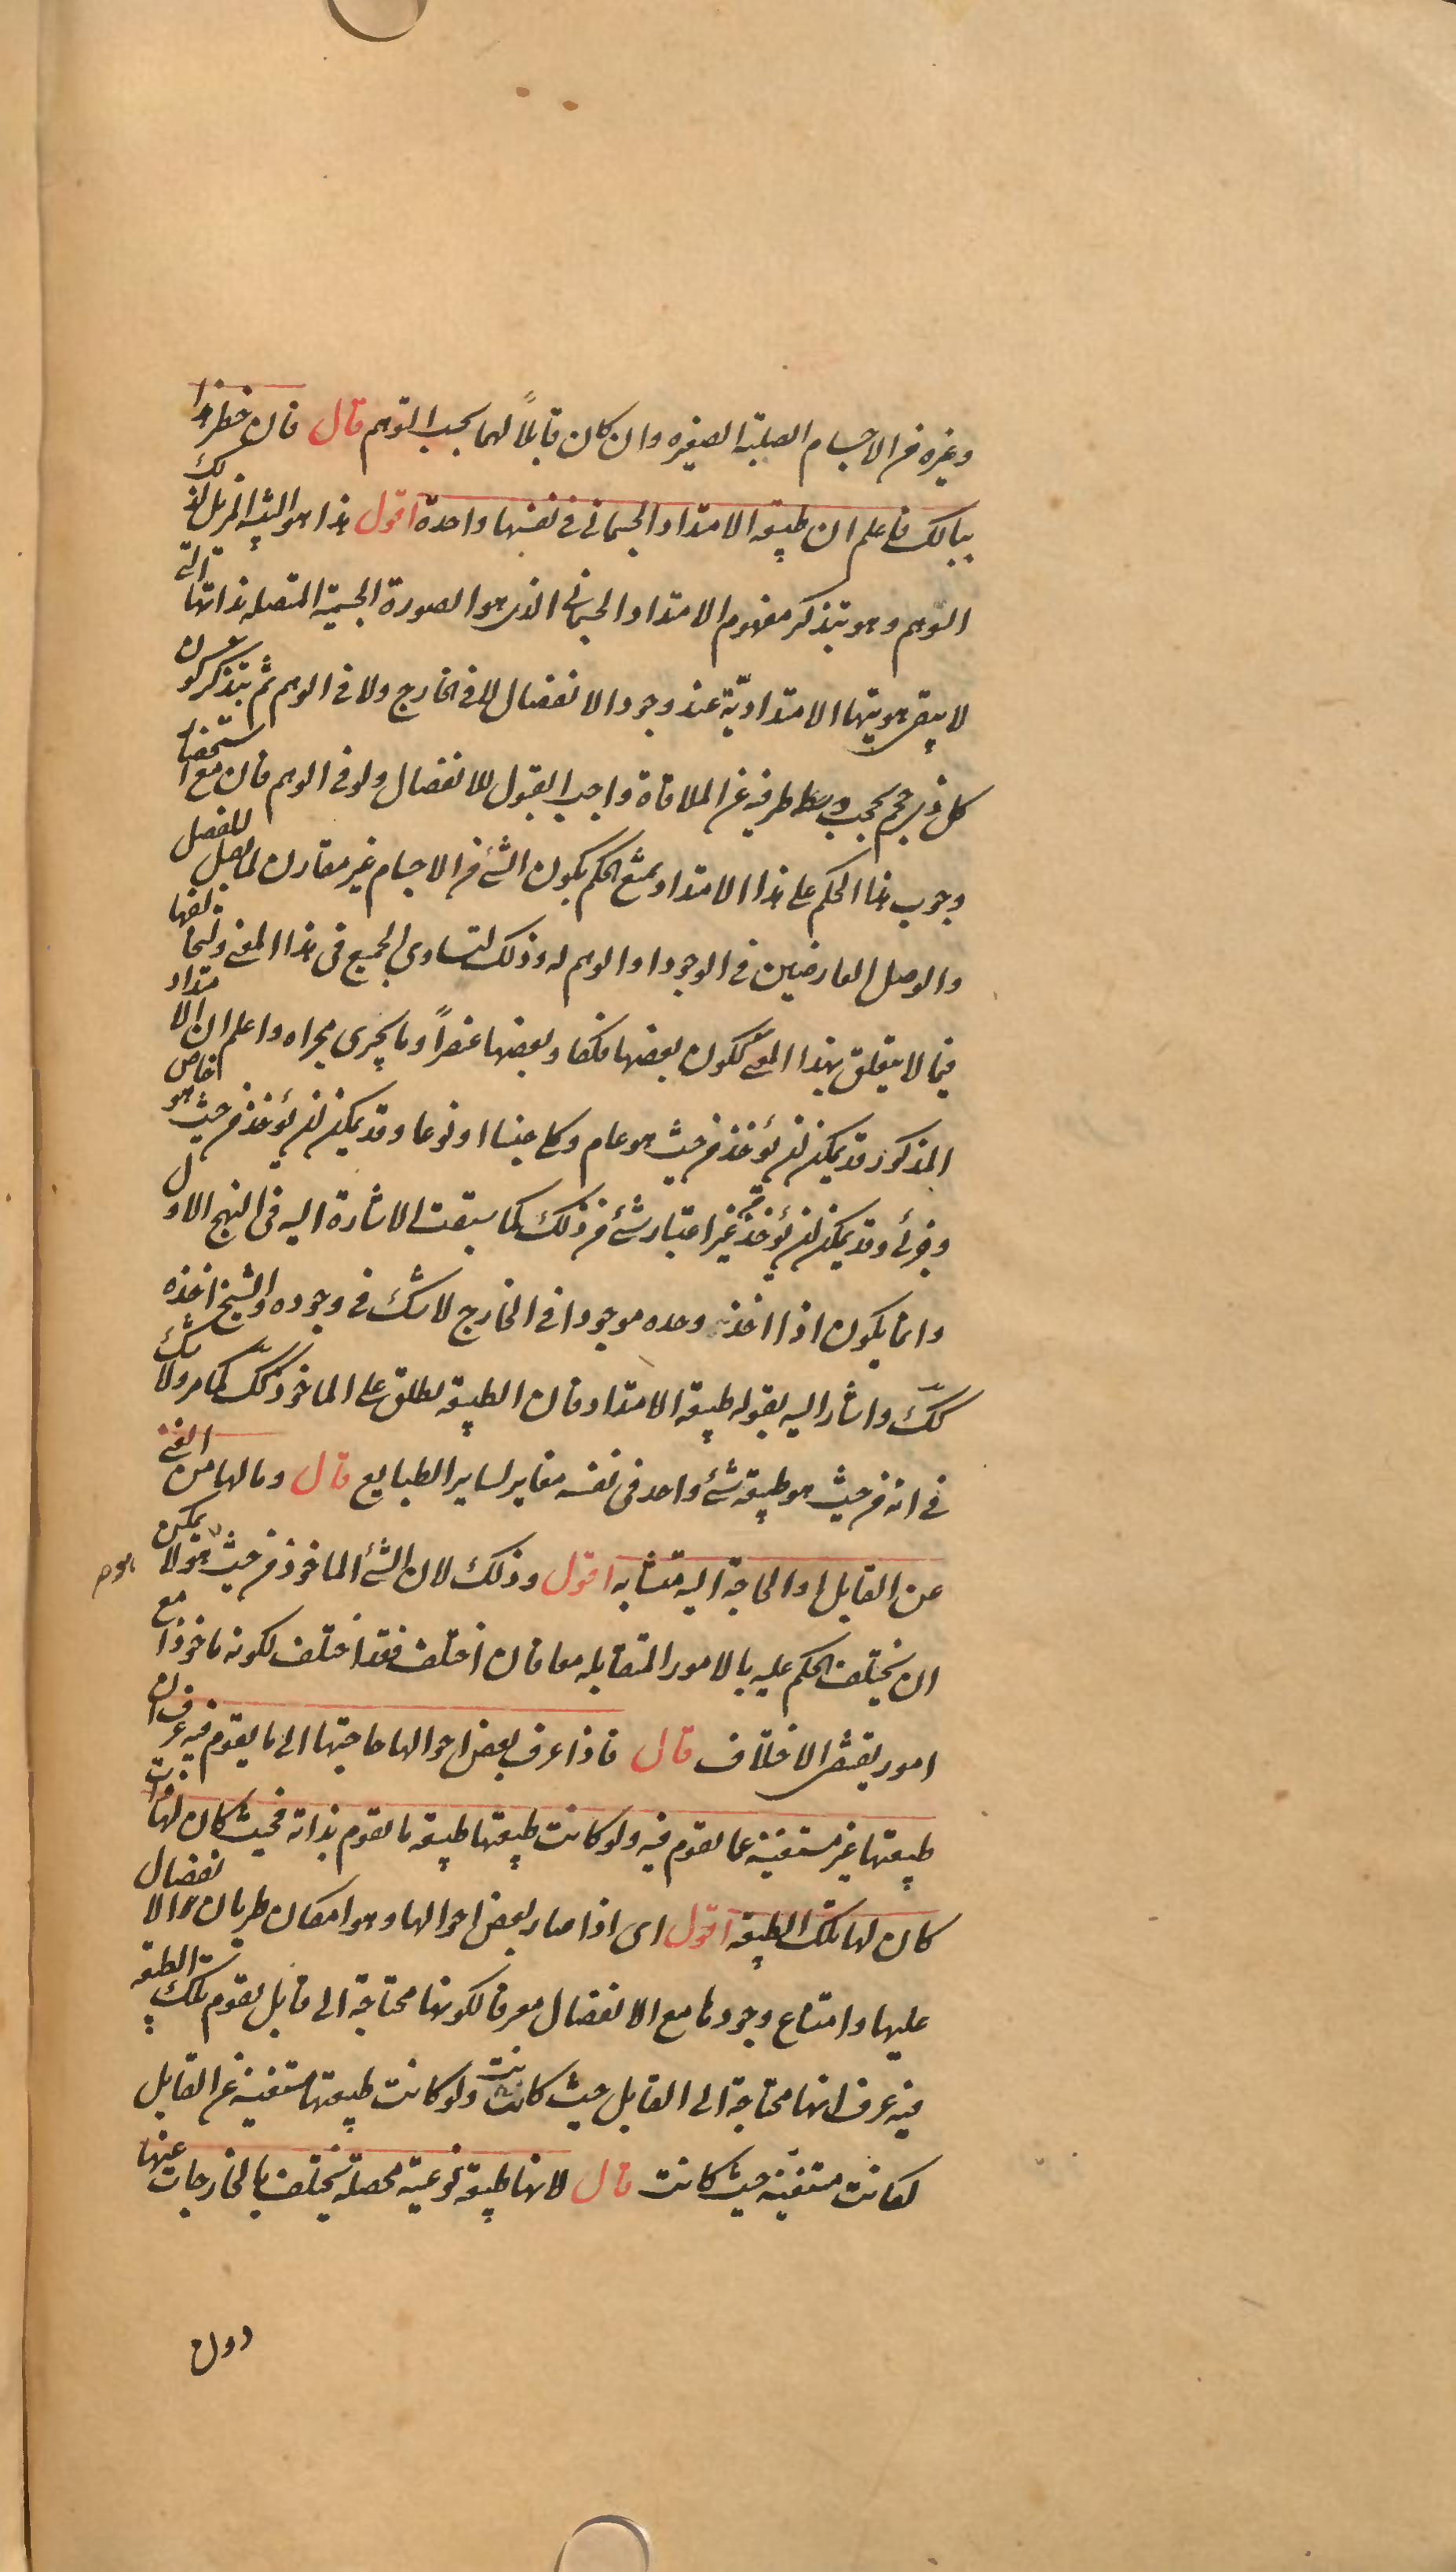 وغيره من الاجسام الصلبة الصغيره وان كان قابلاً لهما بحسب التوهم قال فان خطر هذا
ببالك فاعلم ان طبيعة الامتداد الجسماني في نفسها واحدة اقول هذا هو التنبيه المزيل لذلك
التوهم وهو بتذكر مفهوم الامتداد الجسماني الذي هو الصورة الجسمية المتصله بذاتها التي
لا يبقى هويتها الامتداديّة عند وجود الانفصال لا في الخارج ولا في الوهم ثم بتذكر كون
كل ذي حجم يحجب وسطه طرفيه عن الملاقاة واجب القبول للانفصال ولو في الوهم فان مع استحضار
وجوب هذا الحكم على هذا الامتداد يمتنع الحكم بكون الشئ من الاجسام غير مقارن لما يقبل الفصل
والوصل العارضين في الوجود او الوهم له وذلك لتساوي الجميع في هذا المعنى وتخالفها
فيما لا يتعلق بهذا المعنى ككون بعضها فلكا وبعضها عنصراً وما يجري مجراه واعلم ان الامتداد
المذكور قد يمكن ان يؤخذ من حيث هو عام وكلي جنسا او نوعا وقد يمكن ان يؤخذ من حيث هو خاص
وجزئي وقد يمكن ان يؤخذ من غير اعتبار شئ من ذلك كما سبقت الاشارة اليه في النهج الاول
وانما يكون اذا اخذ وحده موجودا في الخارج لا شك في وجوده والشيخ اخذه
كك واشار اليه بقوله طبيعة الامتداد فان الطبيعة يطلق على الماخوذ كك كما مر ولا شك
في انه من حيث هو طبيعة شئ واحد في نفسه مغاير لساير الطبايع قال وما لها من الغنى
عن القابل او الحاجة اليه متشابه اقول وذلك لان الشئ الماخوذ من حيث هو لا يمكن
ان يختلف الحكم عليه بالامور المتقابله معا فان اختلف فقد اختلف لكونه ماخوذا مع
امور يقتضى الاختلاف قال فاذا عرف بعض احوالها حاجتها الى ما يقوم فيه عرف ان
طبيعتها غير مستغنية عما يقوم فيه ولو كانت طبيعتها طبيعة ما يقوم بذاته فحيث كان لها ذات
كان لها تلك الطبيعة اقول اى اذا صار بعض احوالها وهو امكان طريان الانفصال
عليها وامتناع وجودها مع الانفصال معرفا لكونها محتاجة الى قابل يقوم تلك الطبيعة
فيه عرف انها محتاجة الى القابل حيث كانت ولو كانت طبيعتها مستغنية عن القابل
لكانت مستغنية حيث كانت قال لانها طبيعة نوعية محصلة تختلف بالخارجات عنها
دون